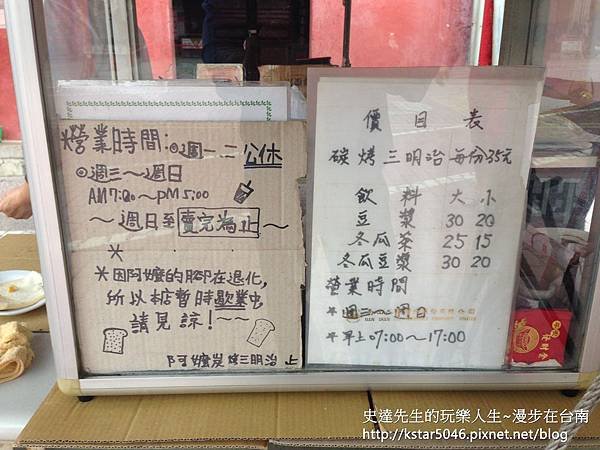 *營業時間:⊙週一二公休
⊙週三~週日
AM7:00~PM5:00
~週日至賣完為止~
*
*因阿嬤的腳在退化,
所以本店暫時歇業中
請見諒!~
阿嬤炭烤三明治 上
價目表
碳烤三明治每份35元
飲料 大 小
豆漿 30 20
冬瓜茶 25 15
冬瓜豆漿 30 20
營業時間
*週三~週日
*早上07:00~17:00
史達先生的玩樂人生~漫步在台南
http://kstar5046.pixnet.net/blog